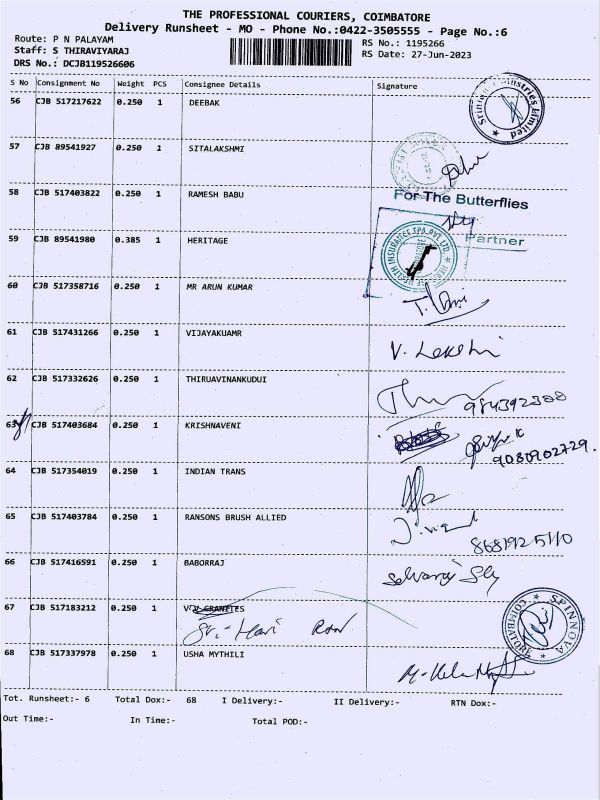 THE PROFESSIONAL COURIERS, COIMBATORE
Delivery Runsheet - MO - Phone No.:0422-3505555 - Page No.:6
Route: P N PALAYAM
Staff: S THIRAVIYARAJ
DRS No.: DCJB119526606
RS No.: 1195266
RS Date: 27-Jun-2023
S No Consignment No Weight PCS Consignee Details Signature
56 CJB 517217622 0.250 1 DEEBAK
57 CJB 89541927 0.250 1 SITALAKSHMI
58 CJB 517403822 0.250 1 RAMESH BABU
For The Butterflies
Partner
59 CJB 89541980 0.385 1 HERITAGE
60 CJB 517358716 0.250 1 MR ARUN KUMAR
61 CJB 517431266 0.250 1 VIJAYAKUAMR
62 CJB 517332626 0.250 1 THIRUAVINANKUDUI
63 CJB 517403684 0.250 1 KRISHNAVENI
9080902729.
64 CJB 517354019 0.250 1 INDIAN TRANS
65 CJB 517403784 0.250 1 RANSONS BRUSH ALLIED
8681925110
66 CJB 517416591 0.250 1 BABORRAJ
67 CJB 517183212 0.250 1 V V GRANITES
Sri-Hari
SPINNOVA
COIMBATORE
68 CJB 517337978 0.250 1 USHA MYTHILI
Tot. Runsheet:- 6 Total Dox:- 68 I Delivery:- II Delivery:- RTN Dox:-
Out Time:- In Time:- Total POD:-